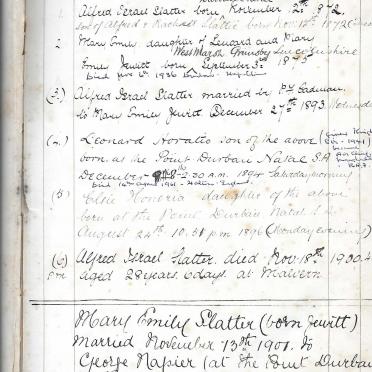 1. Alfred Israel Slatter born November 20th 1872.
son of Alfred & Rachael Slatter born Nov 12th 1872
2. Mary Emily daughter of Leonard and Mary
West Marsh Grimsby Lincolnshire
Emily Jewitt born September 3rd 1875
Died 1936
(3.) Alfred Israel Slatter married by P.y Cadman.
to Mary Emily Jewitt December 27th 1893
(4.) Leonard Horatio son of the above
born at the Point Durban Natal S.A
December 8 - 2.30 a.m. 1894 Saturday morning
Died 14th April 1961
(5) Elsie Honoria daughter of the above
born at the Point Durban Natal S.A.
August 24th 10.31 pm 1896 (Monday evening)
(6) Alfred Israel Slatter. died Nov 18th 1900. 4
pm aged 28 years 6 days at Malvern
Mary Emily Slatter (born Jewitt)
Married November 13th 1901. to
George Napier (at the Point Durban